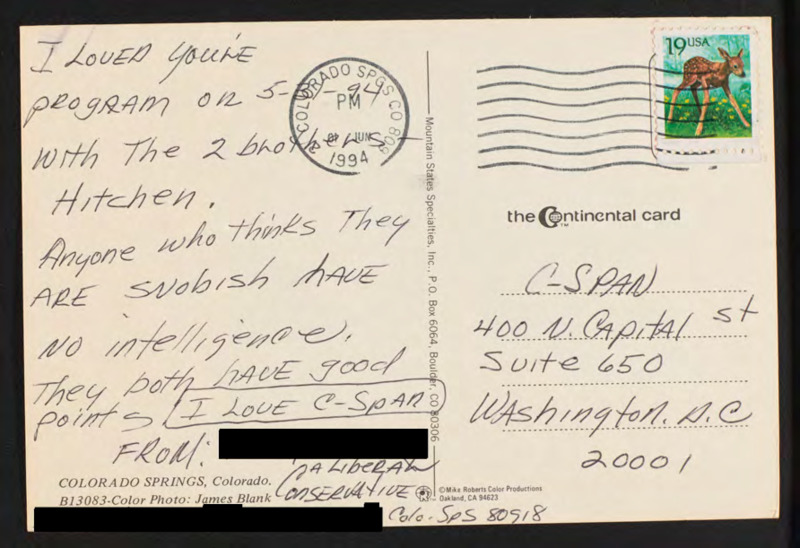 I LOVED YOU'RE
PROGRAM ON 5- -94
WITH THE 2 brothers
Hitchen.
Anyone who thinks They
ARE SNOBISH HAVE
NO intelligence.
They both HAVE good
points I LOVE C-SPAN
FROM:
A LIBERAL
CONSERVATIVE
COLORADO SPRINGS, Colorado.
B13083-Color Photo: James Blank
Colo. Sps 80918
COLORADO SPGS CO 809
PM
JUN
1994
Mountain States Specialties, Inc., P.O. Box 6064, Boulder, CO 80306
©Mike Roberts Color Productions
Oakland, CA 94623
19USA
the Continental card
TM
C-SPAN
400 N. CAPITAL St
Suite 650
WAshington. D.C
20001